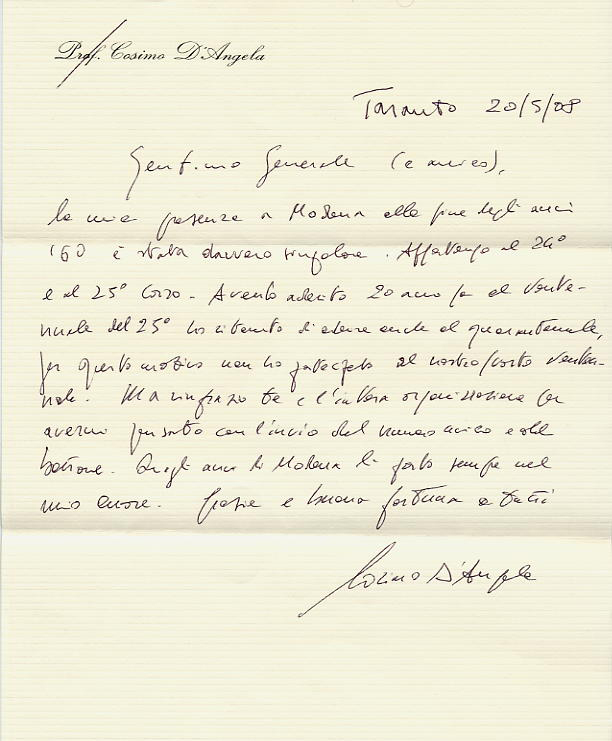 Prof. Cosimo D'Angela
Taranto 20/5/08
Gent.mo Generale (e amico),
la mia presenza a Modena alla fine degli anni
'60 è stata davvero singolare. Appartengo al 24°
e al 25° Corso. Avendo aderito 20 anni fa al Vente-
nnale del 25° ho ritenuto di aderire anche al quarantennale,
per questo motivo non ho partecipato al nostro/vostro
Ma ringrazio te e l'intera organizzazione per
avermi pensato con l'invio del numero unico e del
Quegli anni di Modena li porto sempre nel
mio cuore. Grazie e buona fortuna a tutti
Cosimo D'Angela